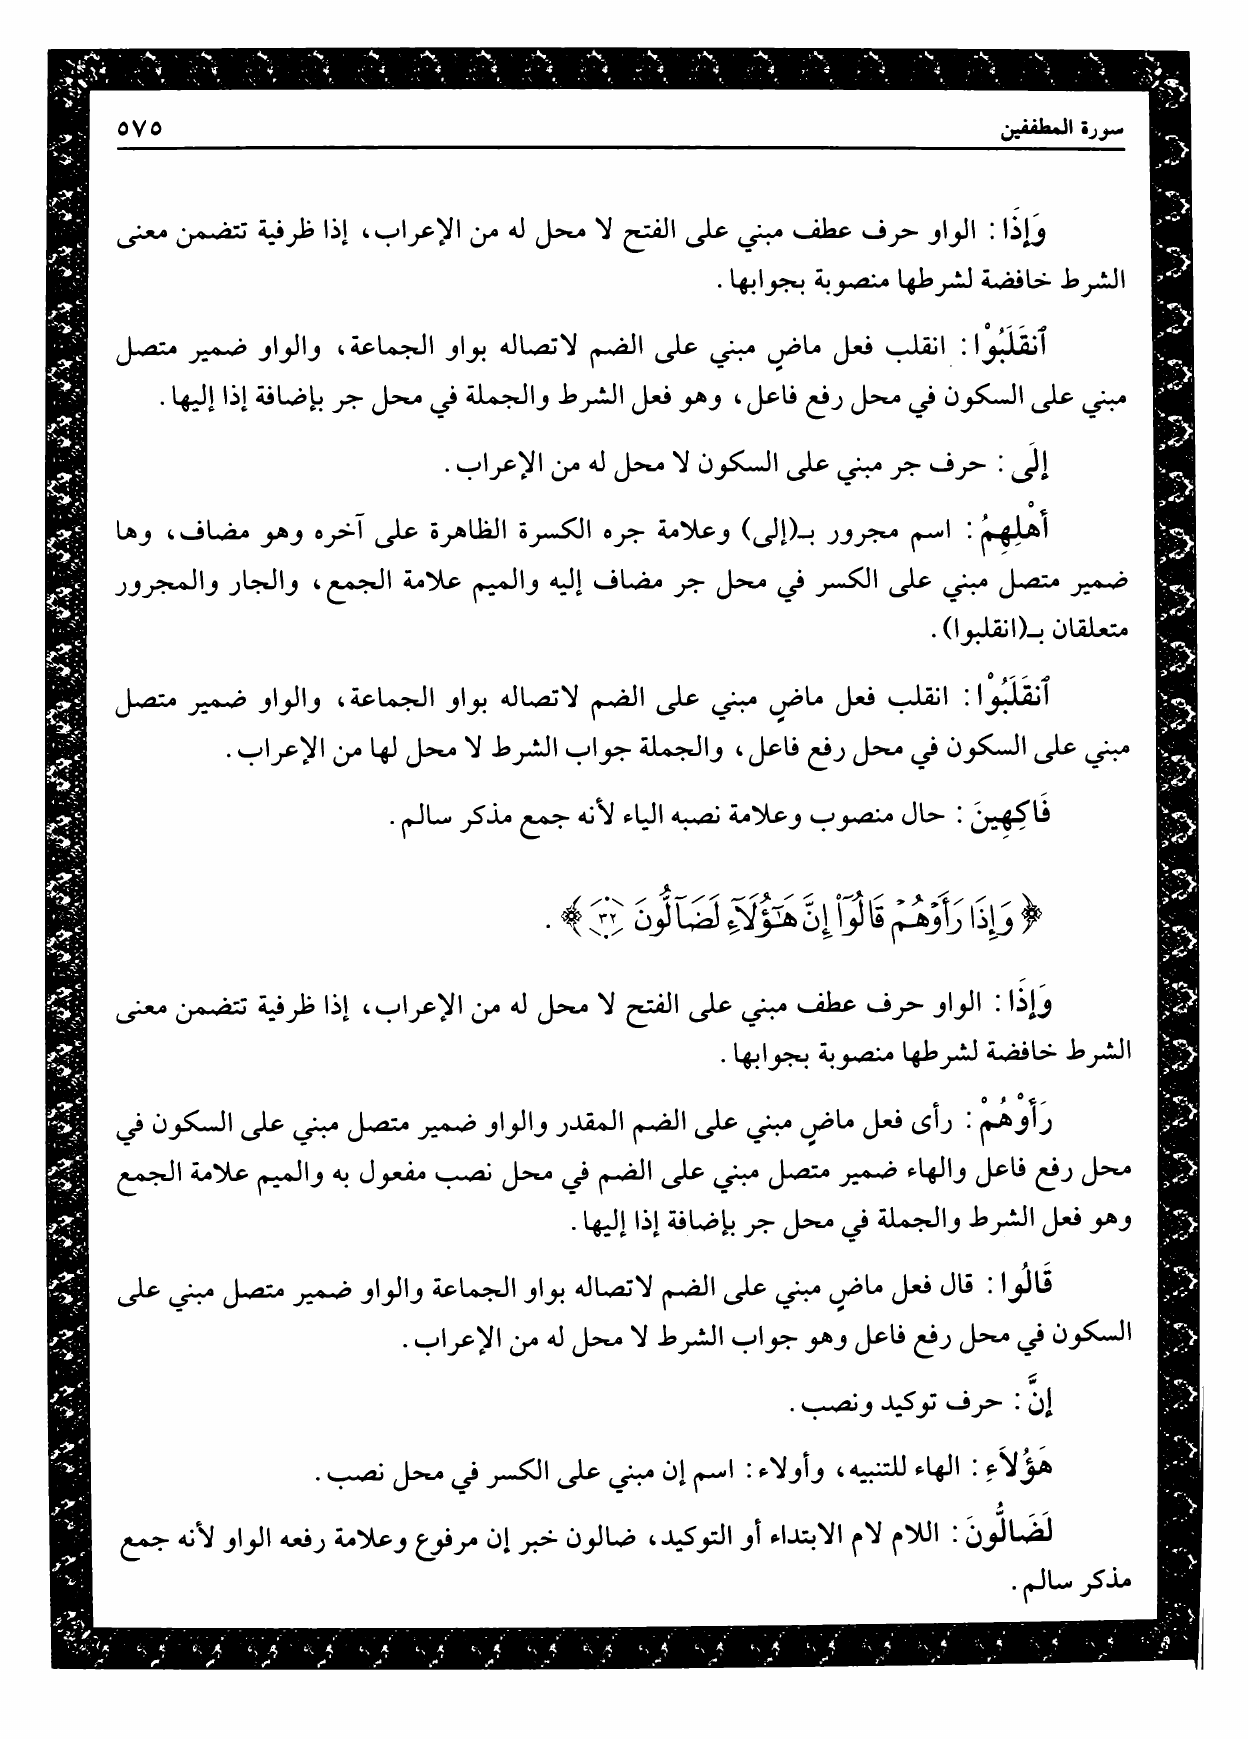 سورة المطففين
٥٧٥
وَإِذَا: الواو حرف عطف مبني على الفتح لا محل له من الإعراب، إذا ظرفية تتضمن معنى
الشرط خافضة لشرطها منصوبة بجوابها.
ٱنقَلَبُوْا: انقلب فعل ماضٍ مبني على الضم لاتصاله بواو الجماعة، والواو ضمير متصل
مبني على السكون في محل رفع فاعل، وهو فعل الشرط والجملة في محل جر بإضافة إذا إليها.
إلَى: حرف جر مبني على السكون لا محل له من الإعراب.
أَهْلِهِمُ: اسم مجرور بـ(إلى) وعلامة جره الكسرة الظاهرة على آخره وهو مضاف، وها
ضمير متصل مبني على الكسر في محل جر مضاف إليه والميم علامة الجمع، والجار والمجرور
متعلقان بـ(انقلبوا).
ٱنقَلَبُوْا: انقلب فعل ماضٍ مبني على الضم لاتصاله بواو الجماعة، والواو ضمير متصل
مبني على السكون في محل رفع فاعل، والجملة جواب الشرط لا محل لها من الإعراب.
فَاكِهِينَ: حال منصوب وعلامة نصبه الياء لأنه جمع مذكر سالم.
﴿وَإِذَا رَأَوْهُمْ قَالُوٓاْ إِنَّ هَٰٓؤُلَآءِ لَضَآلُّونَ ٣٢﴾.
وَإِذَا: الواو حرف عطف مبني على الفتح لا محل له من الإعراب، إذا ظرفية تتضمن معنى
الشرط خافضة لشرطها منصوبة بجوابها.
رَأَوْهُمْ: رأى فعل ماضٍ مبني على الضم المقدر والواو ضمير متصل مبني على السكون في
محل رفع فاعل والهاء ضمير متصل مبني على الضم في محل نصب مفعول به والميم علامة الجمع
وهو فعل الشرط والجملة في محل جر بإضافة إذا إليها.
قَالُوا: قال فعل ماضٍ مبني على الضم لاتصاله بواو الجماعة والواو ضمير متصل مبني على
السكون في محل رفع فاعل وهو جواب الشرط لا محل له من الإعراب.
إنَّ: حرف توكيد ونصب.
هَؤُلاَءِ: الهاء للتنبيه، وأولاء: اسم إن مبني على الكسر في محل نصب.
لَضَالُّونَ: اللام لام الابتداء أو التوكيد، ضالون خبر إن مرفوع وعلامة رفعه الواو لأنه جمع
مذكر سالم.